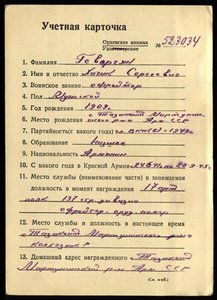 Учетная карточка
Орденская книжка
Удостоверение № 523034
1. Фамилия Геворгян
2. Имя и отчество Сергеевич
3. Воинское звание ефрейтор
4. Пол Мужской
5. Год рождения 1909.
6. Место рождения Арм. ССР
7. Партийность (с какого года)
8. Образование Низшее
9. Национальность Армянин
10. С какого года в Красной Армии
11. Место службы (наименование части) и занимаемая
должность в момент награждения 17 арт
полк 131 стр. дивизии
ефрейтор
12. Место службы и должность в настоящее время
Мартунинского р-на
колхозник
13. Домашний адрес награжденного
Мартунинский р-н Арм. ССР
(См. на об.)